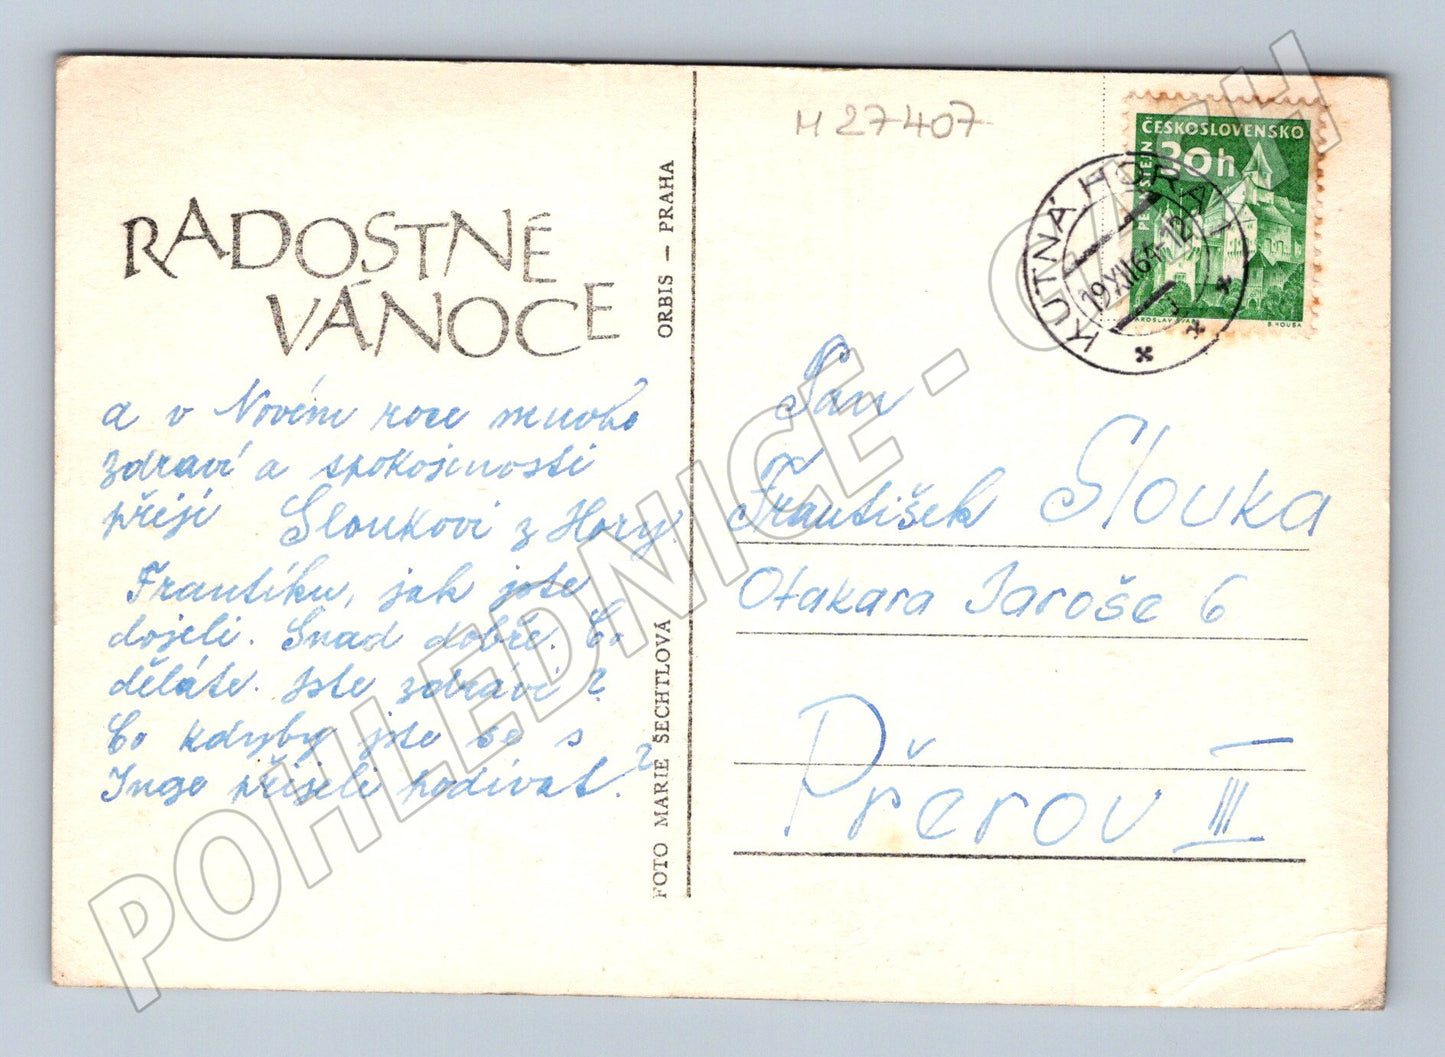 RADOSTNÉ
VÁNOCE
a v Novém roce mnoho
zdraví a spokojenosti
přejí Sloukovi z Hory.
Frantíku, jak jste
dojeli. Snad dobře. Co
děláte. Jste zdraví?
Co kdyby jste se s
Ingo přijeli podívat?
ORBIS – PRAHA
FOTO MARIE ŠECHTLOVÁ
M 27407
ČESKOSLOVENSKO
30h
PERNŠTEJN
JAROSLAV ŠVÁB
B. HOUSA
KUTNÁ HORA 1
19.XII.64-12
Pan
František Slouka
Otakara Jaroše 6
Přerov III
POHLEDNICE - ONLINE.CH